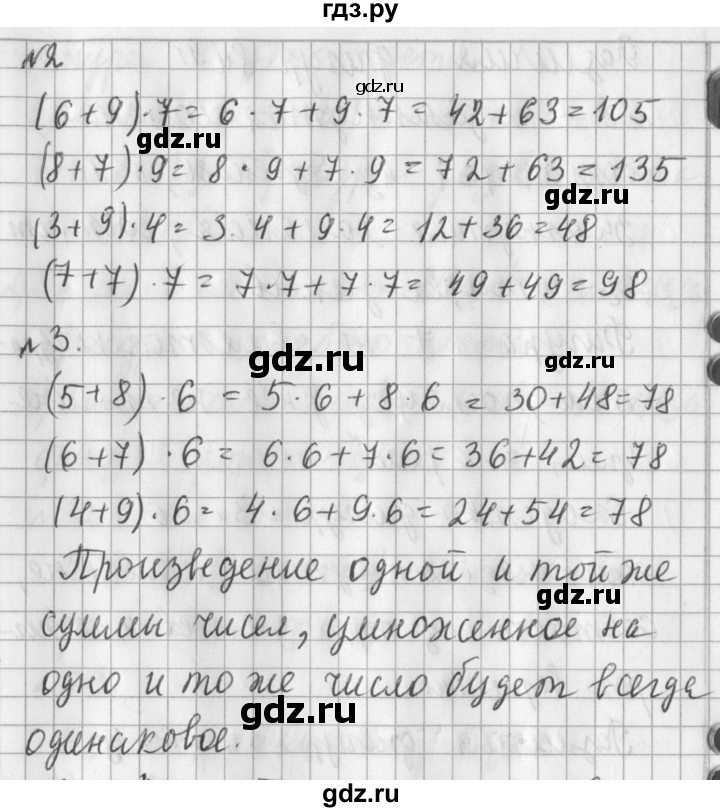 гдз.ру
№2
gdz.ru
(6+9)·7= 6·7+9·7= 42+63=105
gdz.ru
(8+7)·9= 8·9+7·9=72+63=135
gdz.ru
(3+9)·4= 3·4+9·4= 12+36=48
(7+7)·7= 7·7+7·7= 49+49=98
№3.
gdz.ru
gdz.ru
(5+8)·6 = 5·6+8·6 = 30+48=78
(6+7)·6= 6·6+7·6=36+42=78
(4+9)·6= 4·6+9·6=24+54=78
Произведение одной и той же
gdz.ru
суммы чисел, умноженное на
одно и то же число будет всегда
gdz.ru
одинаковое.
gdz.ru